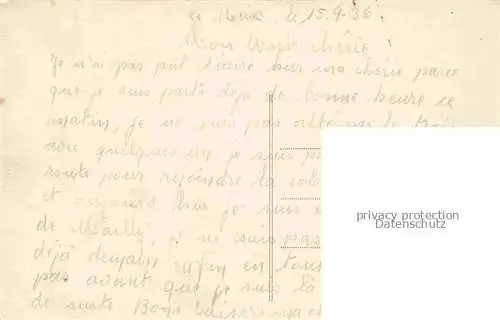 le 15.9.36
Mon chérie
Je n'ai pas pût t'écrire hier ma chérie parce
que je suis parti déjà de bonne heure ce
matin, je ne suis pas allé
avec quelques un je suis
route pour rejoindre la
et aujourd hui je suis
de Mailly, je ne suis pas
déjà demain enfin en tous
pas avant que je suis là
de suite. Bons
privacy protection
Datenschutz